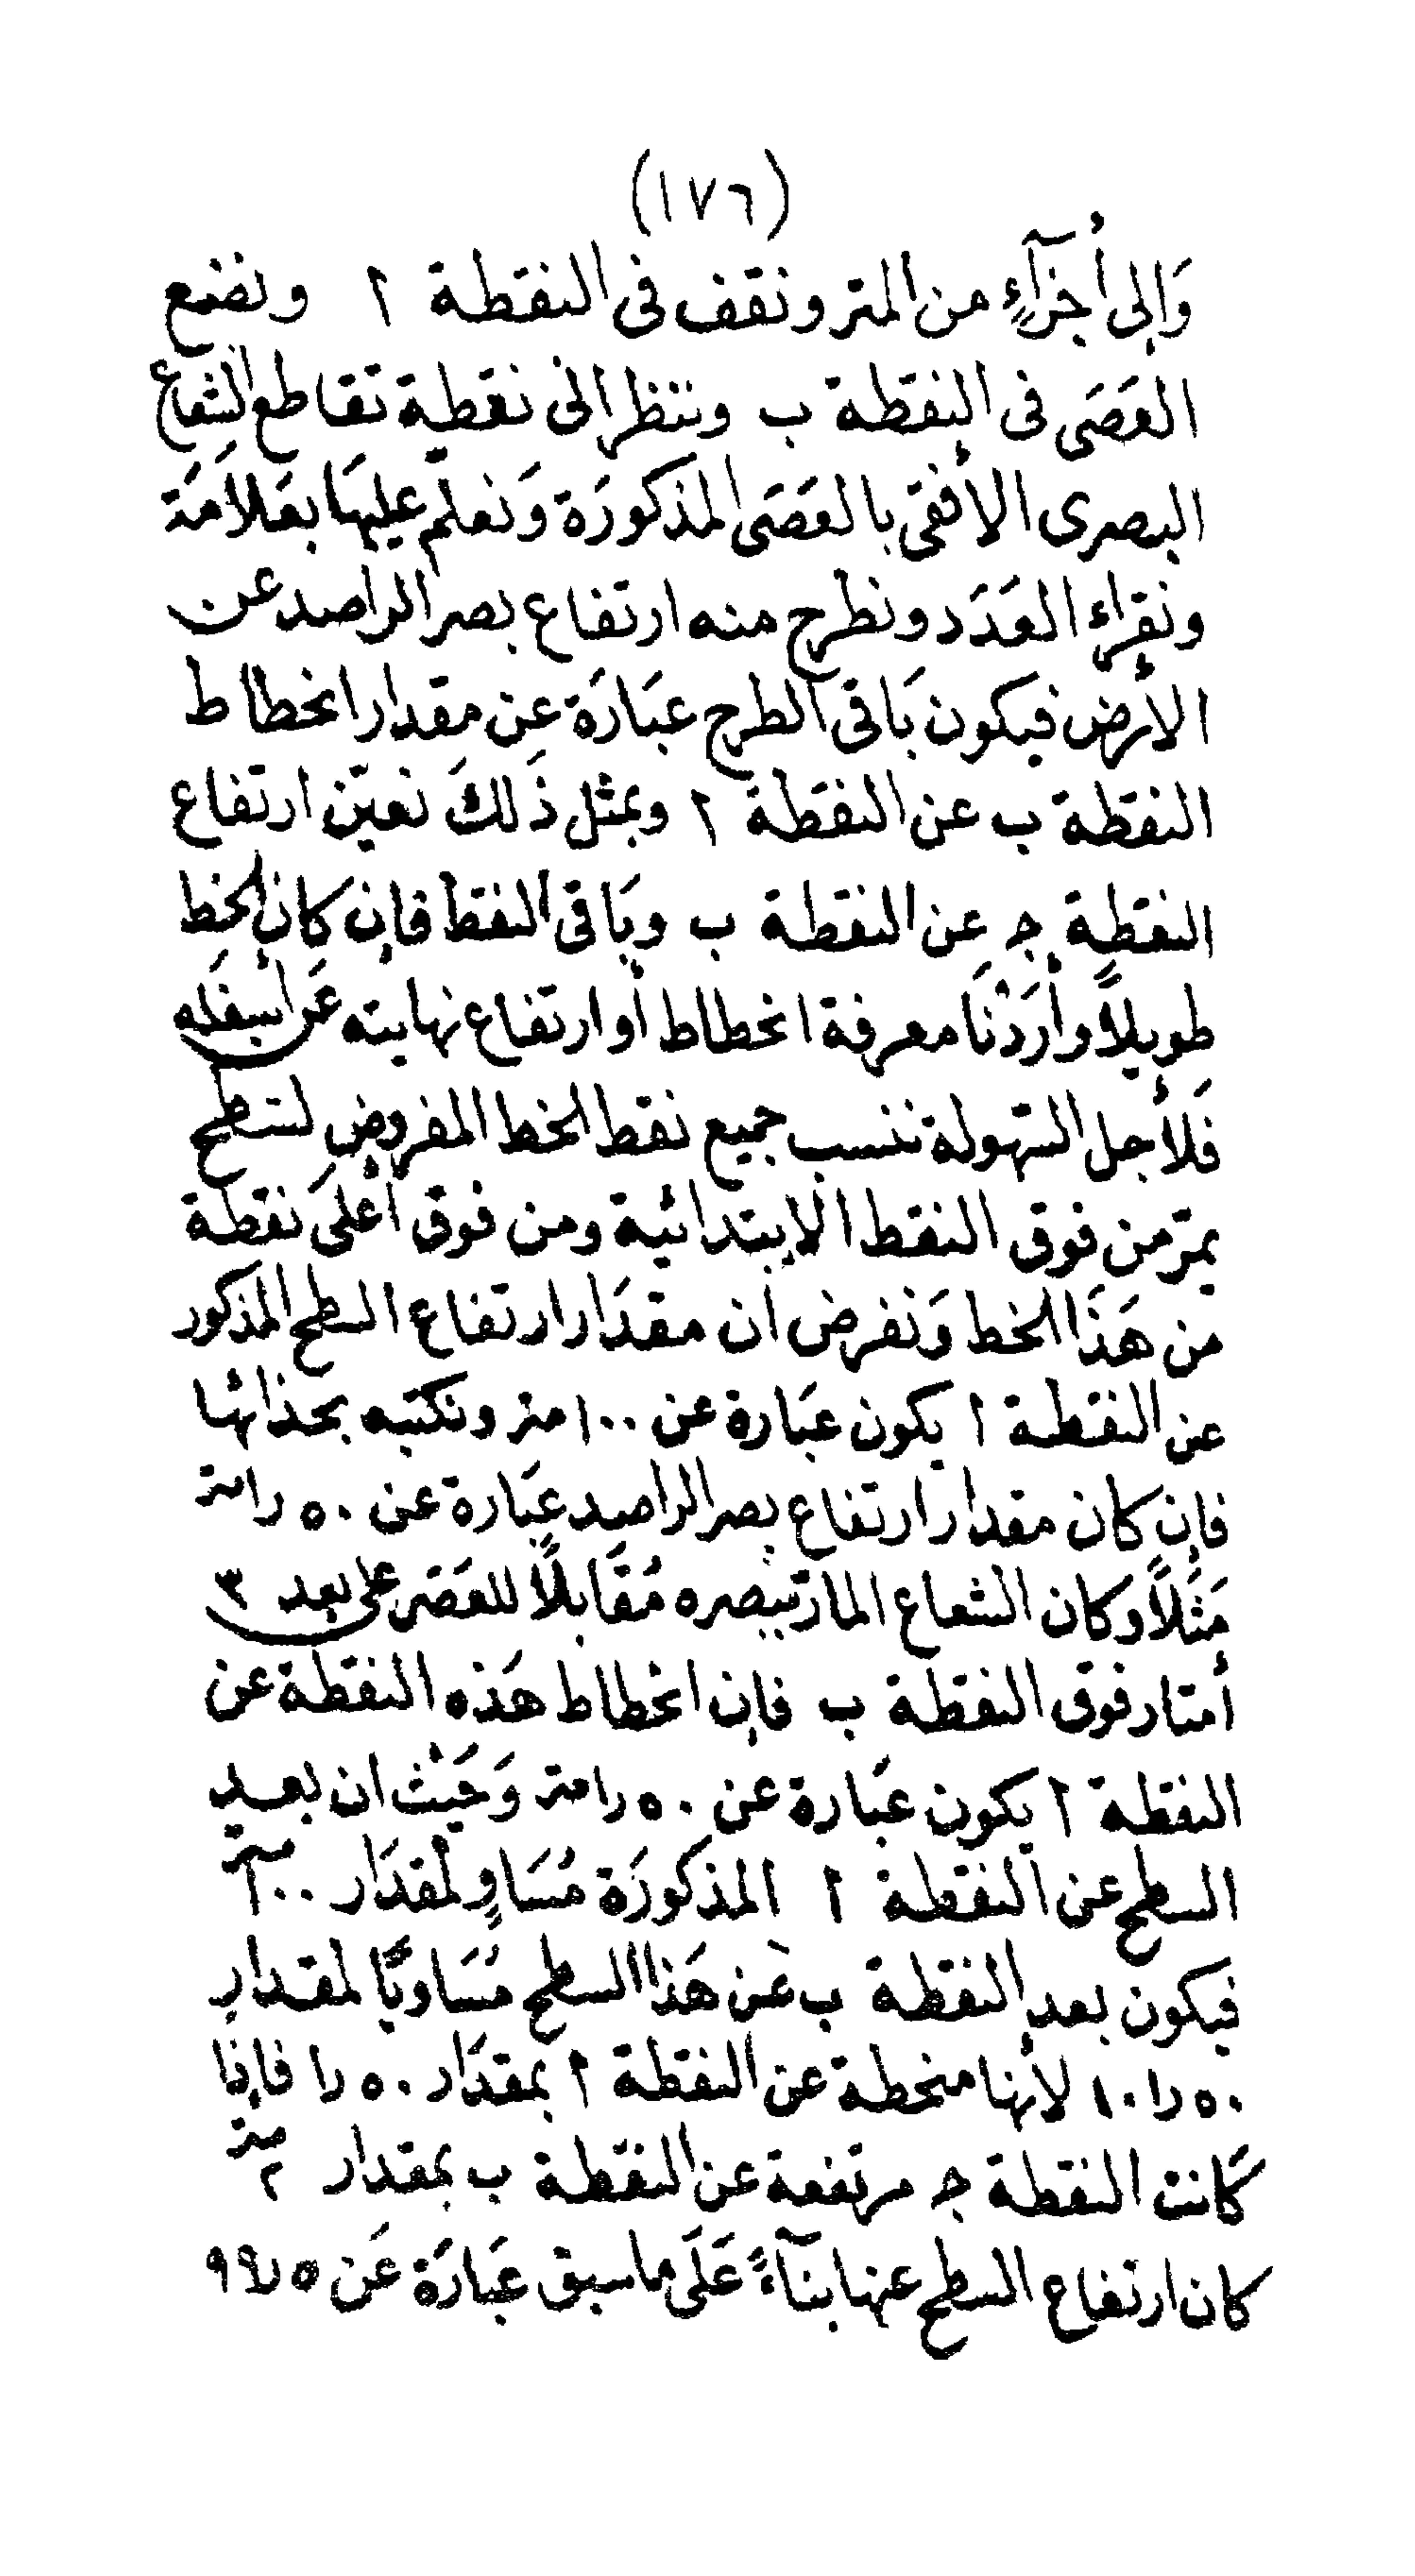 (١٧٦)
وَإلى أجزآءٍ من المتر ونقف فى النقطة ا ونضع
العَصَى فى النقطة ب وننظر الى نقطة تقاطع الشعاع
البصرى الأفقى بالعَصَى المذكورَة وَنعلّم عليهَا بعَلاَمَة
ونقراء العَدَد ونطرح منه ارتفاع بصر الراصد عن
الأرض فيكون بَاقى الطرح عبَارَة عن مقدار انخطاط
النقطة ب عن النقطة ا وبمثل ذَلكَ نعيّن ارتفاع
النقطة ج عن النقطة ب وبَاقى النقط فإن كان الخط
طويلاً وأرَدْنَا معرفة انخطاط أو ارتفاع نهايته عَن أسفَله
فَلأجل السّهولة ننسب جميع نقط الخط المفروض لسَطح
يمرّ من فوق النقط الابتدائية ومن فوق أعلىَ نقطة
من هَذَا الخط وَنفرض أن مقدَار ارتفاع السطح المذكور
عن النقطة ا يكون عبَارة عن ١٠٠ متر ونكتبه بحذائها
فإن كان مقدار ارتفاع بصر الراصد عبَارة عن ٥٠ر١ متر
مَثلاً وكان الشعاع المارّ ببصره مُقَابلاً للعَصَى على بعد ٣
أمتار فوق النقطة ب فإن انخطاط هَذه النقطة عن
النقطة ا يكون عبَارة عن ٥٠ر١ متر وَحَيْث ان بعد
السطح عن النقطة ا المذكورَة مُسَاوٍ لمقدَار ١٠٠ متر
فيكون بعد النقطة ب عَن هَذا السطح مُسَاويًا لمقدار
٥٠ر١٠١ لأنها منخطة عن النقطة ا بمقدَار ٥٠ر١ فإذا
كَانت النقطة ج مرتفعة عن النقطة ب بمقدار ٢ متر
كان ارتفاع السطح عنها بنآءً عَلَى ماسبق عبَارَة عَن ٥ر٩٩